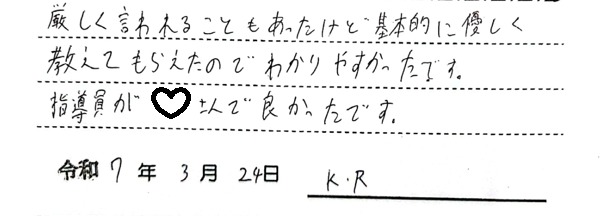 厳しく言われることもあったけど基本的に優しく
教えてもらえたのでわかりやすかったです。
指導員が♡さんで良かったです。
令和7年3月24日 K.R